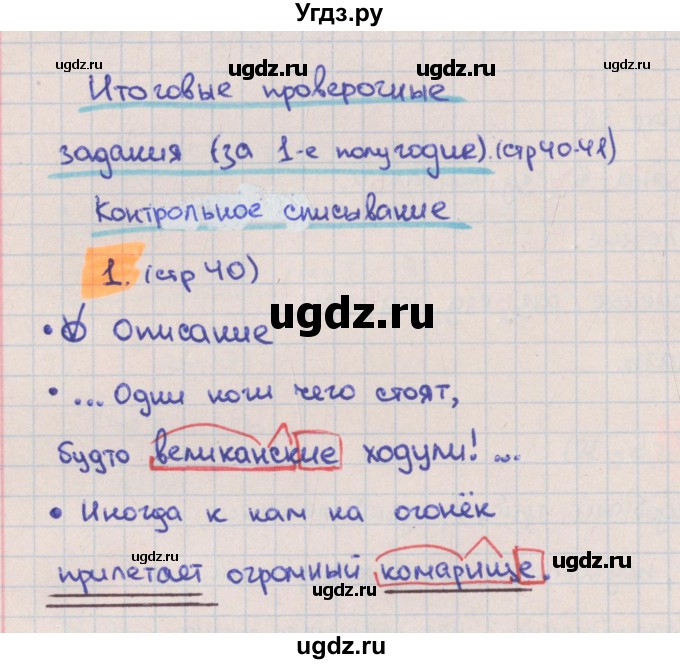 Угдз.ру
ugdz.ru ugdz.ru ugdz.ru
Итоговые проверочные
задания (за 1-е полугодие). (стр 40-41)
ugdz.ru ugdz.ru
Контрольное списывание
1. (стр 40)
ugdz.ru
• Описание
• ... Одни ноги чего стоят,
ugdz.ru ugdz.ru
будто великанские ходули! ...
• Иногда к нам на огонёк
ugdz.ru ugdz.ru
прилетает огромный комарище.
ugdz.ru
ugdz.ru